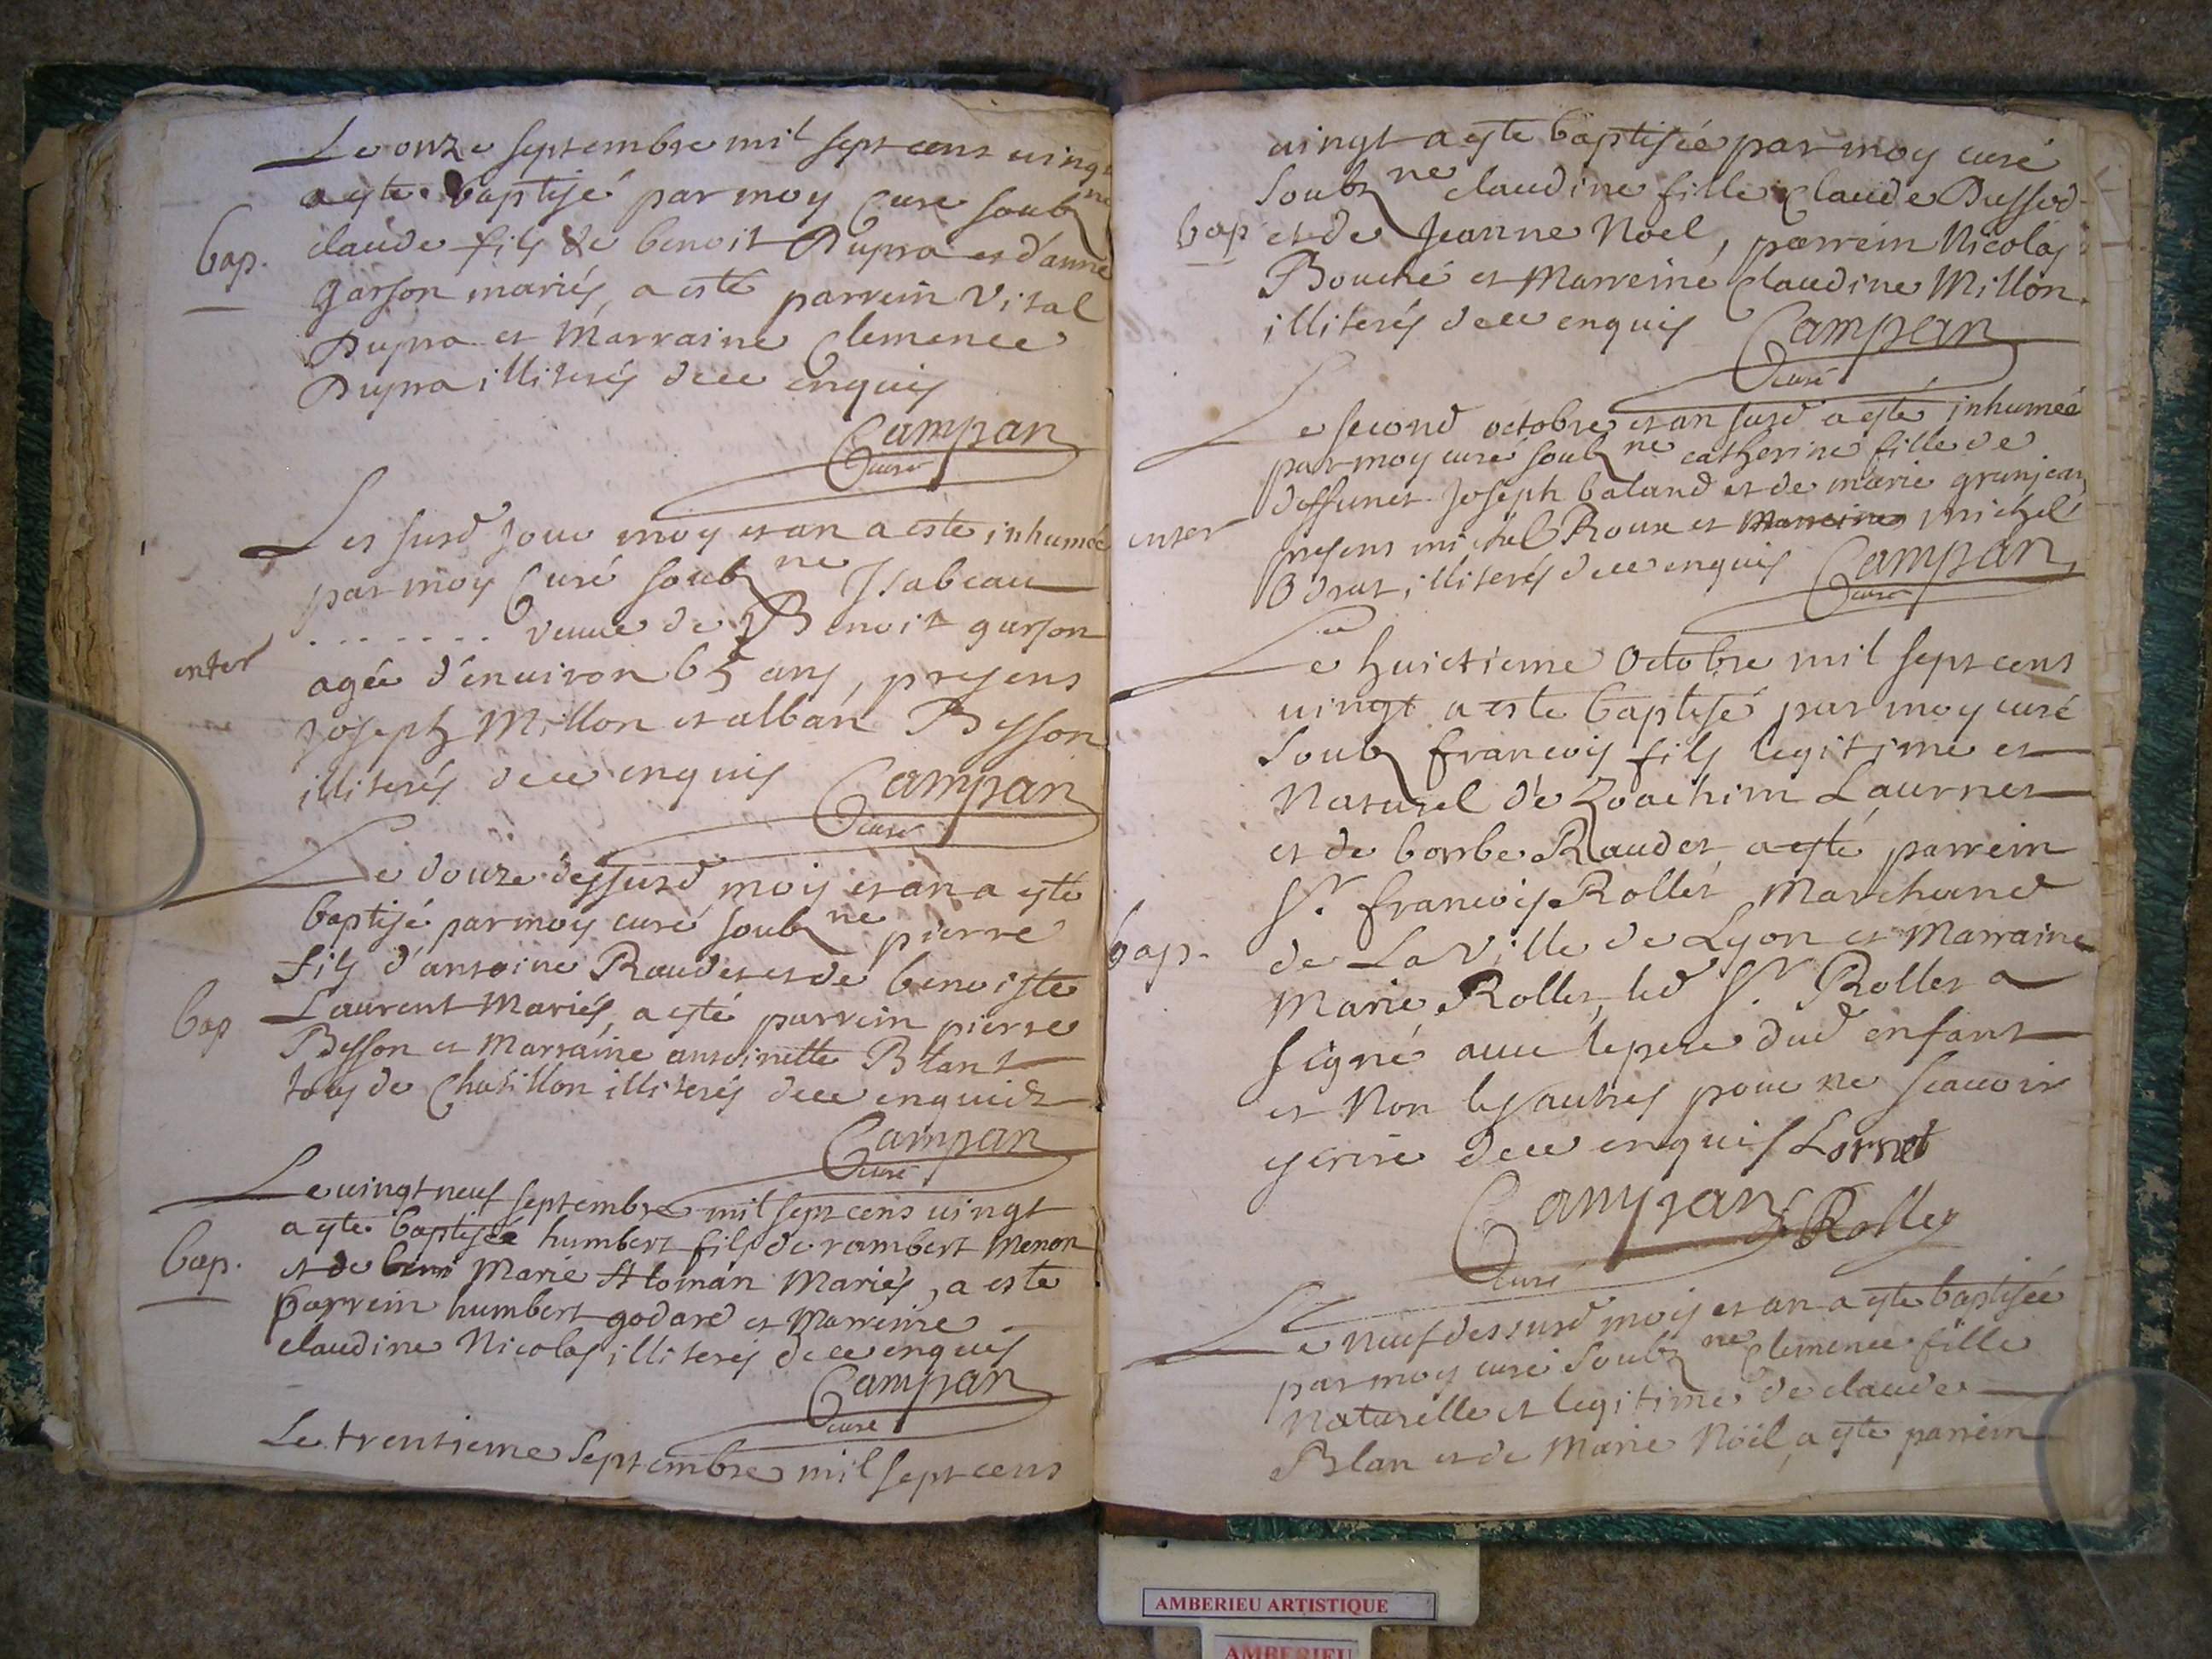 Le onze septembre mil sept cens uingt
a esté baptisé par moy Curé soubz ne
bap.
claude fils de benoit Dupra et d'anne
garson mariés, a esté parrein Vital
Dupra et Marraine Clemence
Dupra illiterés de ce enquis
Campan
Curé
Les susd jour moy et an a esté inhumée
par moy Curé soubz ne Isabeau
. . . . . . . veuue de Benoit garson
enter
agée d'enuiron 65 ans, presens
Joseph Millon et alban Besson
illiterés de ce enquis Campan
Curé
Le douze des susd mois et an a esté
baptisé par moy curé soubz ne pierre
fils d'antoine Raudet et de benoiste
bap
Laurent Mariés, a esté parrein pierre
Besson et Marraine antoinette Blant
tous de Chatillon illiterés de ce enquis
Campan
Curé
Le uingt neuf septembre mil sept cens uingt
a esté baptisée humbert fils de rambert Menon
bap.
et de Marie Mariés, a esté
parrein humbert godard et Marreine
claudine Nicolas illiterés de ce enquis
Campan
Curé
Le trentieme Septembre mil sept cens
uingt a esté baptisée par moy curé
soubz ne claudine fille Claude Dussod
bap
et de Jeanne Noel, parrein Nicolas
Bouché et Marreine Claudine Millon
illiterés de ce enquis Campan
Curé
Le second octobre et an susd a esté inhumée
par moy curé soubz ne catherine fille de
deffunct Joseph baland et de marie granjean
enter
presens michel Roux et michel
Odrat illiterés de ce enquis Campan
Curé
Le huictieme Octobre mil sept cens
uingt a esté baptisé par moy curé
soubz francois fils legitime et
Naturel de Joachim Laurnet
et de barbe Raudet, a esté parrein
Sr. francois Rollet Marchand
bap.
de La Ville de Lyon et Marraine
Marie Rollet, led Sr. Rollet a
signé auec le pere dud enfant
et Non les autres pour ne scauoir
escrire de ce enquis Lornet
Campan Rollet
Curé
Le neuf des susd mois et an a esté baptisée
par moy curé Soubz ne Clemence fille
Naturelle et legitime de claude
Blan et de Marie Noël, a esté parrein
AMBERIEU ARTISTIQUE
AMBERIEU